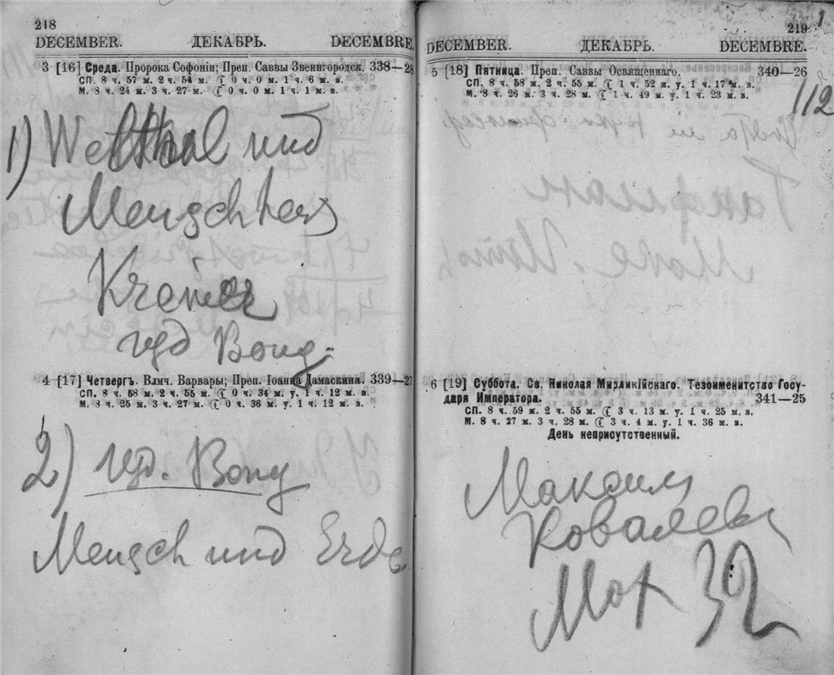 218
DECEMBER. ДЕКАБРЬ. DECEMBRE
3 [16] Среда. Пророка Софоніи; Преп. Саввы Звенигородск. 338—28
СП. 8 ч. 57 м. 2 ч. 54 м. 0 ч. 0 м. 1 ч. 6 м. в.
М. 8 ч. 24 м. 3 ч. 27 м. 0 ч. 0 м. 1 ч. 1 м. в.
1) Weltall und
Menschheit
Kremer
изд Bong.
4 [17] Четвергъ. Влмч. Варвары; Преп. Іоанна Дамаскина. 339—27
СП. 8 ч. 58 м. 2 ч. 55 м. 0 ч. 34 м. у. 1 ч. 12 м. в.
М. 8 ч. 25 м. 3 ч. 27 м. 0 ч. 36 м. у. 1 ч. 12 м. в.
2) изд. Bong
Mensch und Erde
219
DECEMBER. ДЕКАБРЬ. DECEMBRE.
5 [18] Пятница. Преп. Саввы Освященнаго. 340—26
СП. 8 ч. 58 м. 2 ч. 55 м. 1 ч. 52 м. у. 1 ч. 17 м. в.
М. 8 ч. 26 м. 3 ч. 28 м. 1 ч. 49 м. у. 1 ч. 23 м. в.
112
6 [19] Суббота. Св. Николая Мирликійскаго. Тезоименитство Госу-
даря Императора. 341—25
СП. 8 ч. 59 м. 2 ч. 55 м. 3 ч. 13 м. у. 1 ч. 25 м. в.
М. 8 ч. 27 м. 3 ч. 28 м. 3 ч. 4 м. у. 1 ч. 36 м. в.
День неприсутственный.
Максим
Ковалевск
Мох 32